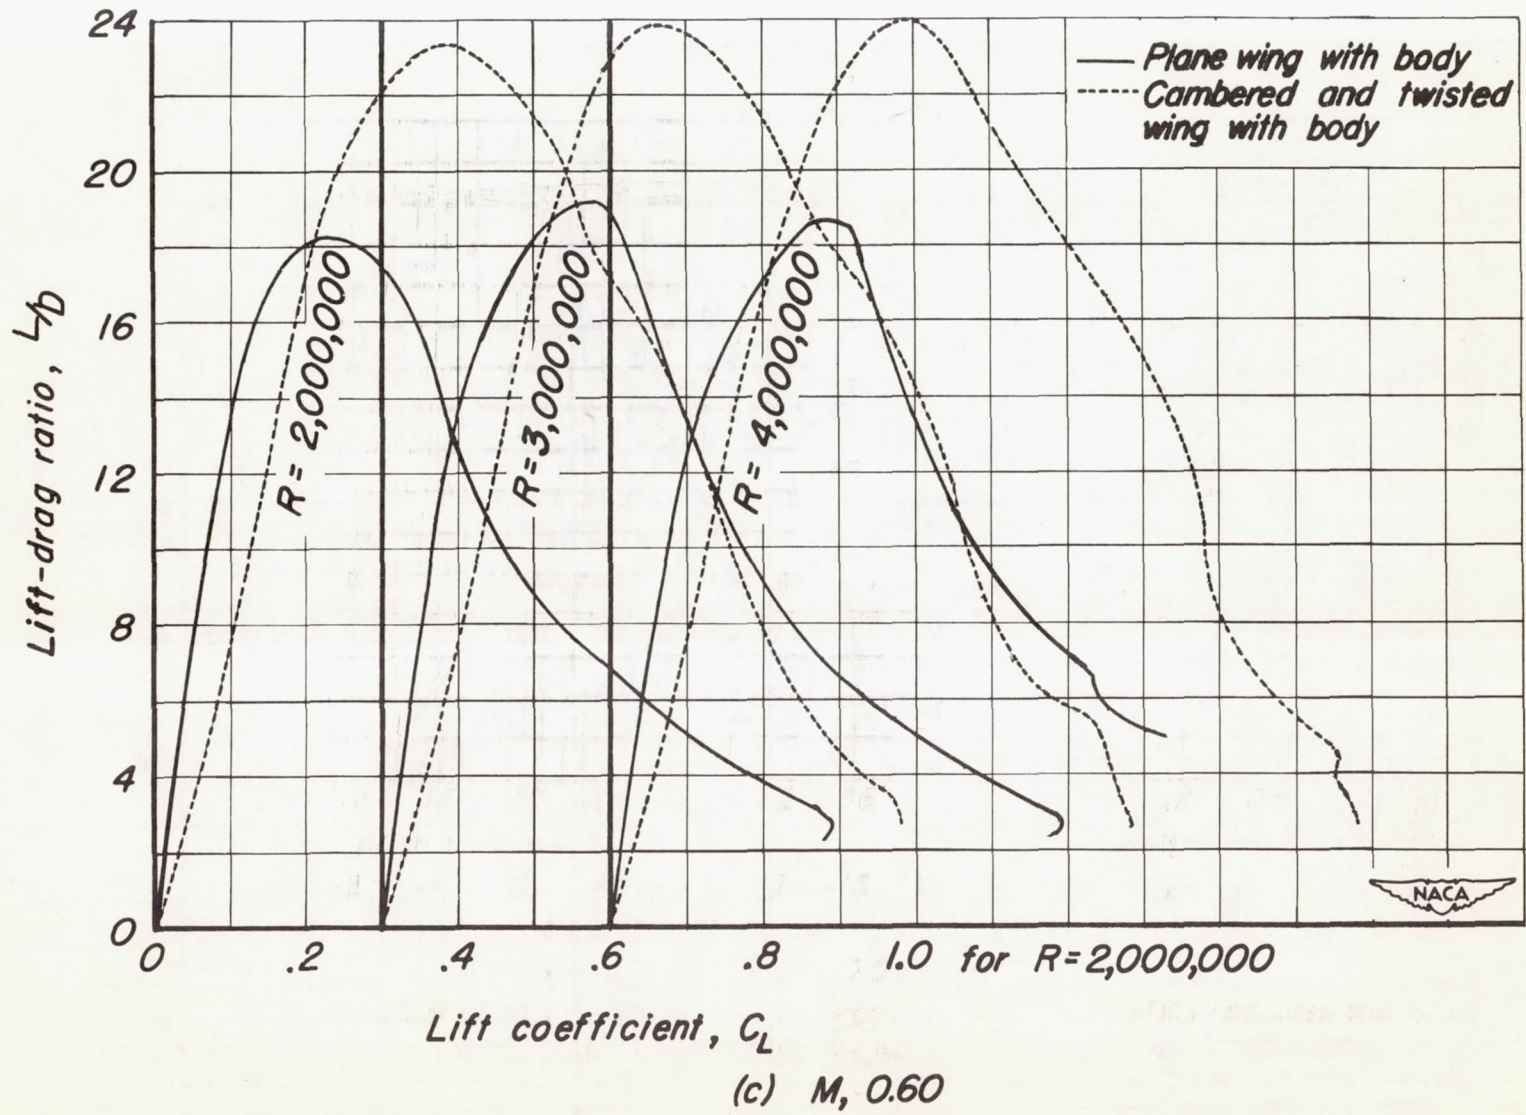 24
20
16
12
8
4
0
Lift-drag ratio, L/D
Plane wing with body
Cambered and twisted
wing with body
R = 2,000,000
R = 3,000,000
R = 4,000,000
NACA
0 .2 .4 .6 .8 1.0 for R = 2,000,000
Lift coefficient, CL
(c) M, 0.60